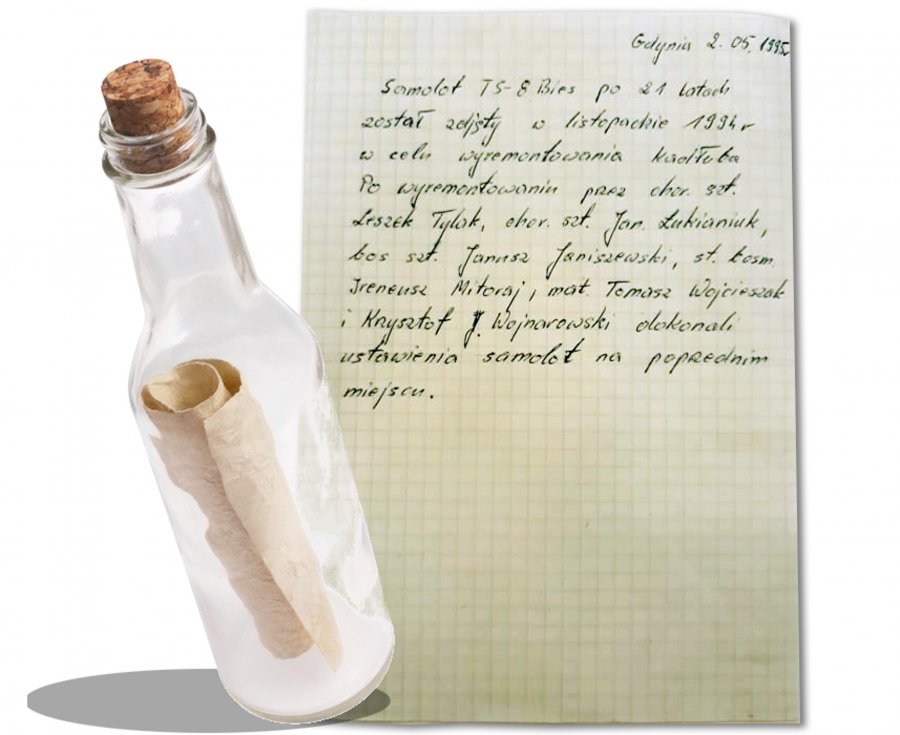 Gdynia 2.05.1995r
Samolot TS-8 Bies po 21 latach
został zdjęty w listopadzie 1994r
w celu wyremontowania kadłuba
Po wyremontowaniu przez chor. szt.
Leszek Tylak, chor. szt. Jan Łukianiuk,
bos szt. Janusz Janiszewski, st. bosm.
Ireneusz Mitoraj, mat. Tomasz Wojcieszak
i Krzysztof J. Wojnarowski dokonali
ustawienia samolot na poprzednim
miejscu.